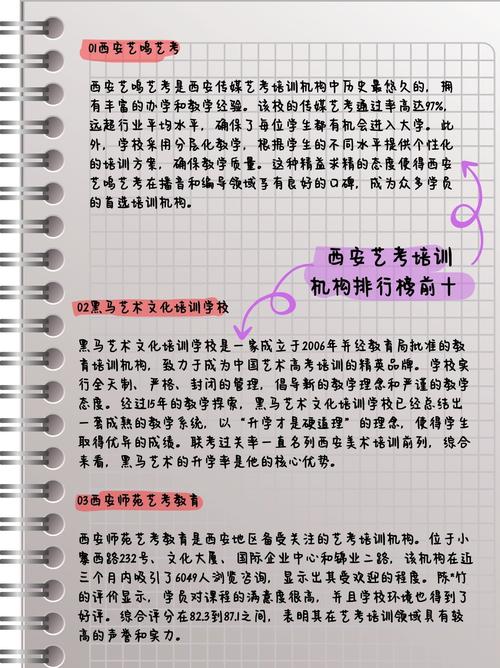 01西安艺鸣艺考
西安艺鸣艺考是西安传媒艺考培训机构中历史最悠久的，拥
有丰富的办学和教学经验。该校的传媒艺考通过率高达97%，
远超行业平均水平，确保了每位学生都有机会进入大学。此
外，学校采用分层化教学，根据学生的不同水平提供个性化
的培训方案，确保教学质量。这种精益求精的态度使得西安
艺鸣艺考在播音和编导领域享有良好的口碑，成为众多学员
的首选培训机构。
西安艺考培训
机构排行榜前十
02黑马艺术文化培训学校
黑马艺术文化培训学校是一家成立于2006年并经教育局批准的教
育培训机构，致力于成为中国艺术高考培训的精英品牌。学校实
行全天制、严格、封闭的管理，倡导新的教学理念和严谨的教学
态度。经过15年的教学探索，黑马艺术文化培训学校已经总结出
一套成熟的教学系统，以“升学才是硬道理”的理念，使得学生
取得优异的成绩。联考过关率一直名列西安美术培训前列，综合
来看，黑马艺术的升学率是他的核心优势。
03西安师苑艺考教育
西安师苑艺考教育是西安地区备受关注的艺考培训机构。位于小
寨西路232号、文化大厦、国际企业中心和锦业二路，该机构在近
三个月内吸引了6049人浏览咨询，显示出其受欢迎的程度。陈*竹
的评价显示，学员对课程的满意度很高，并且学校环境也得到了
好评。综合评分在82.3到87.1之间，表明其在艺考培训领域具有较
高的声誉和实力。